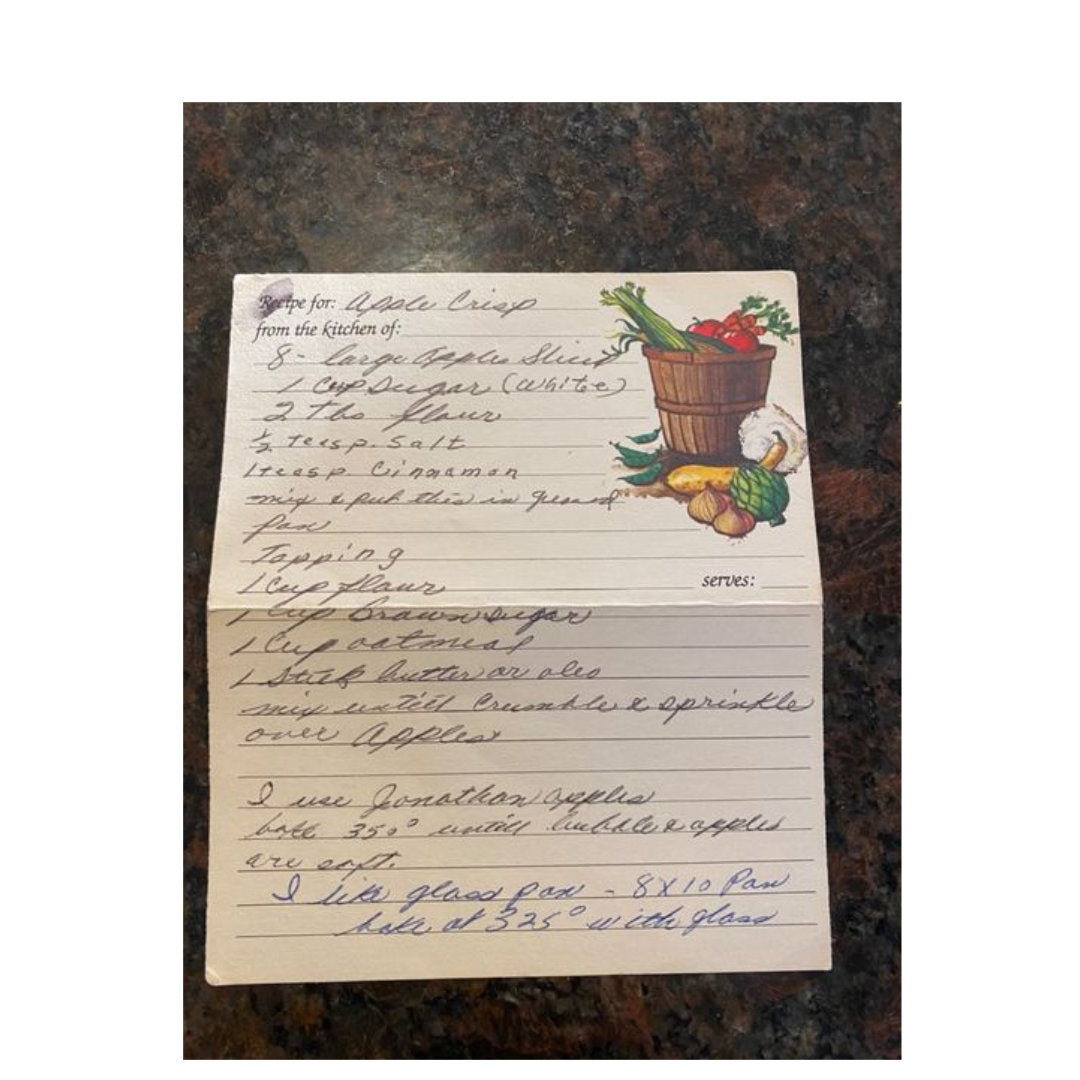 Recipe for: Apple Crisp
from the kitchen of:
8 - large apples Sliced
1 Cup Sugar (White)
2 Tbs flour
½ teasp. Salt
1 teasp. Cinnamon
mix & put this in greased
pan
Topping
1 Cup flour
serves:
1 Cup brown sugar
1 Cup oatmeal
1 Stick butter or oleo
mix untill Crumble & sprinkle
over Apples
I use Jonathan apples
bake 350° untill bubble & apples
are soft.
I like glass pan - 8X10 Pan
bake at 325° with glass